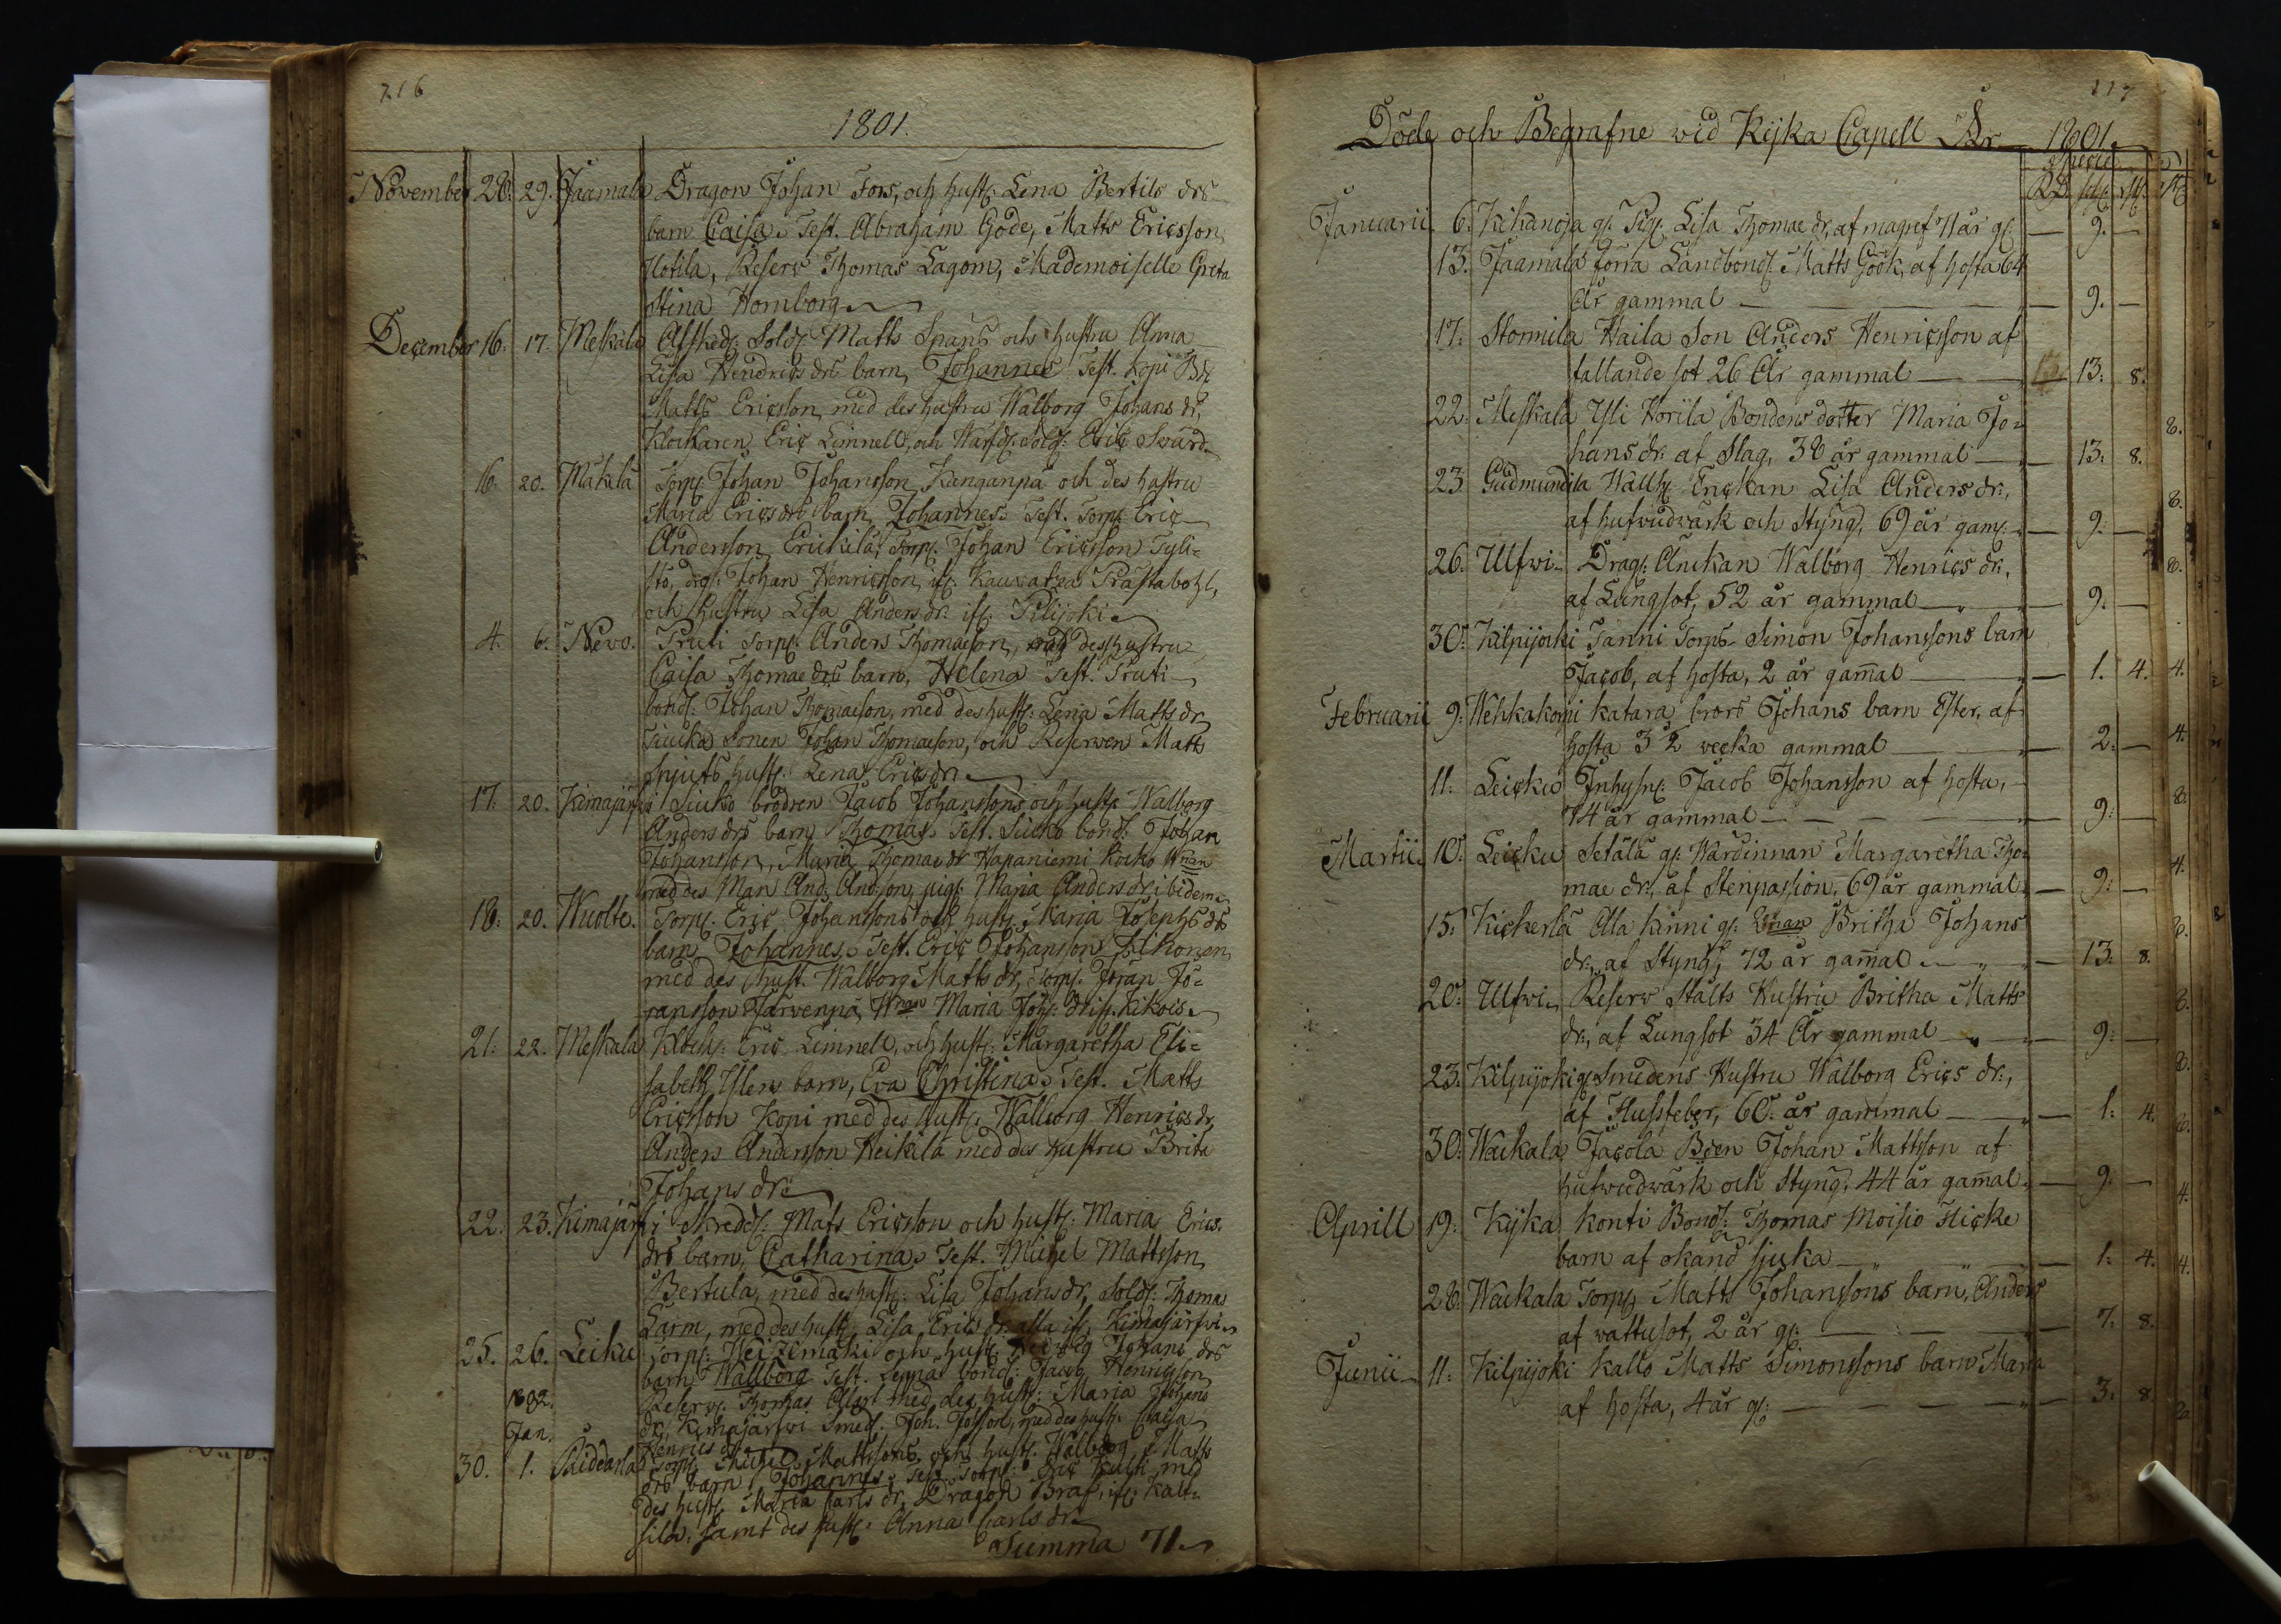 216
1801.
November 28. 29. Jaamala Dragon Johan Fors, och hustr: Lena Bertils drs
barn Caisa. Test. Abraham Göde, Matts Ericsson
Uotila, Reserv Thomas Lagom, Mademoiselle Greta
Stina Homborg
December 16. 17. Meskala Afsked: Sold: Matts Spans och hustru Anna
Lisa Hendrics drs barn, Johannes Test. Kopi
Matts Ericsson, med des hustru Walborg Johans dr,
Klockaren Eric Limnell, och Warf: Sold: Eric Swärd.
16. 20. Mäkilä Torp: Johan Johansson Kanganpä och des hustru
Maria Erics drs barn, Johannes. Test. Torp: Eric
Andersson, Erickilä, Torp: Johan Ericsson Tyli=
stö, drg: Johan Henricsson, if: Kauvatza Prästabohl,
och Hustru Lisa Anders dr. if: Pilijoki
4. 6. Nevo. Pruti Torp: Anders Thomæson, och des hustru
Caisa Thomæ drs barn, Helena Test. Pruti
bond: Johan Thomæson, med des hust: Lena Matts dr,
Siucko Sonen Johan Thomæson, och Reserven Matts
Spjuts hust: Lena Erics dr.
17. 20. Kimajärfvi Siucko brodren Jacob Johanssons och hustr: Walborg
Anders drs barn Thomas. Test. Siucko bond: Johan
Johansson, Maria Thomæ dr Hapaniemi Kocko Wman
med des Man And: Andsson, pig: Maria Anders dr. ibidem
18. 20. Wuolte. Torp: Eric Johanssons och hustr: Maria Josephs drs
barn Johannes. Test. Eric Johansson Kikonen,
med des hust. Walborg Matts dr, Torp: Jöran Jö=
ransson Järvenpä, Wman Maria Joh: dr if: Kikois
21. 22. Meskala Klock: Eric Limnell, och hustr: Margaretha Eli=
sabeth Ylens barn, Eva Christina. Test. Matts
Ericsson Kopi med des hustr: Walborg Henrics dr,
Anders Andersson Heikilä med des Hustru Brita
Johans dr.
22. 23. Kimajärfvi Skredd: Mats Ericsson och hust: Maria Erics.
drs barn, Catharina. Test. Michel Mattsson,
Bertula, med des hustr: Lisa Johans dr, Sold: Thomas
Larm, med des hustr: Lisa Erics dr alla if: Kimajärfvi
25. 26. Leiku Torp: Heizimäki och hustr: Walborg Johans drs
barn Wallborg Test. Seppäs bond: Jacob Henricsson
1802. Reserv: Thomas Alert med des hustr: Maria Johans
Jan. dr, Kimajärfvi Smed: Joh. Johsson, med des hustr: Caisa
Henrics dr
30. 1. Puideanla Torp: Michel Mattssons och hustr. Walborg Matts
drs barn Johannes. Test. Torp: Eric Kulsi med
des hustr: Maria Carls dr, Dragon Braf, if: Kalt=
sila, samt des hustr: Anna Carls dr
Summa 71
217
Döde och Begrafne wid Kijka Capell År 1801.
Specie
RD. sch: rst:
Januarii 6. Kihanoja gl: Pig: Lisa Thomæ dr. af magref 71 år gl: — 9. —
13. Jaamala förra Landbond: Matts Göök, af hosta 64
år gammal — 9. —
17. Stomila Haila Son Anders Henricsson af
fallandesot 26 År gammal — 13: 8.
22. Meskala Yli Horila Bondens dotter Maria Jo=
hans dr: af Slag, 38 år gammal — 13: 8. 8.
23 Gudmundila Wallh: Enckan Lisa Anders dr:,
af hufwudwärk och Styng, 69 år gam: — 9. — 8.
26. Ulfwi Drag: Enckan Walborg Henrics dr:,
af Lungsot, 52 år gammal — 9. — 8.
30. Kilpijocki Tanni Torps Simon Johanssons barn
Jacob, af hosta, 2 år gam̄al — 1. 4. 4.
Februarii 9. Wehkakorpi katara brors Johans barn Ester, af
hosta 3 ½ wecka gammal — 2: — 4.
11. Leicku Inhys: Jacob Johansson af hosta,
74 år gammal — 9: — 8.
Martii. 10. Leicku Setälä gl: Wärdinnan Margaretha Tho=
mæ dr:, af Stenpassion, 69 år gammal — 9: — 4.
15. Kickerlä Ala Kinni gl: Wman Britha Johans
dr:, af Styng, 72 år gam̄al — 13: 8. 8.
20. Ulfwi Reserv Stålts Hustru Britha Matts
dr:, af Lungsot 34 År gammal — 9: — 8.
23. Kilpijoki gl: Smedens Hustru Walborg Erics dr:,
af Flussfeber, 60. år gammal — 1: 4. 8.
30. Wackala Jacola Bden Johan Mattsson af
hufwudwärk och Styng, 44 år gam̄al — 9. — 8.
Aprill 19. Kijka Konti Bond: Thomas Moisio Flicke
barn af okänd sjuka — 1: 4. 4.
28. Wackala Torp: Matts Johanssons barn, Anders
af wattusot, 2 år gl: — 7: 8. 4.
Junii 11. Kilpijoki Kallo Matts Simonssons barn Maria
af hosta, 4 år gl: — 3: 8 8.